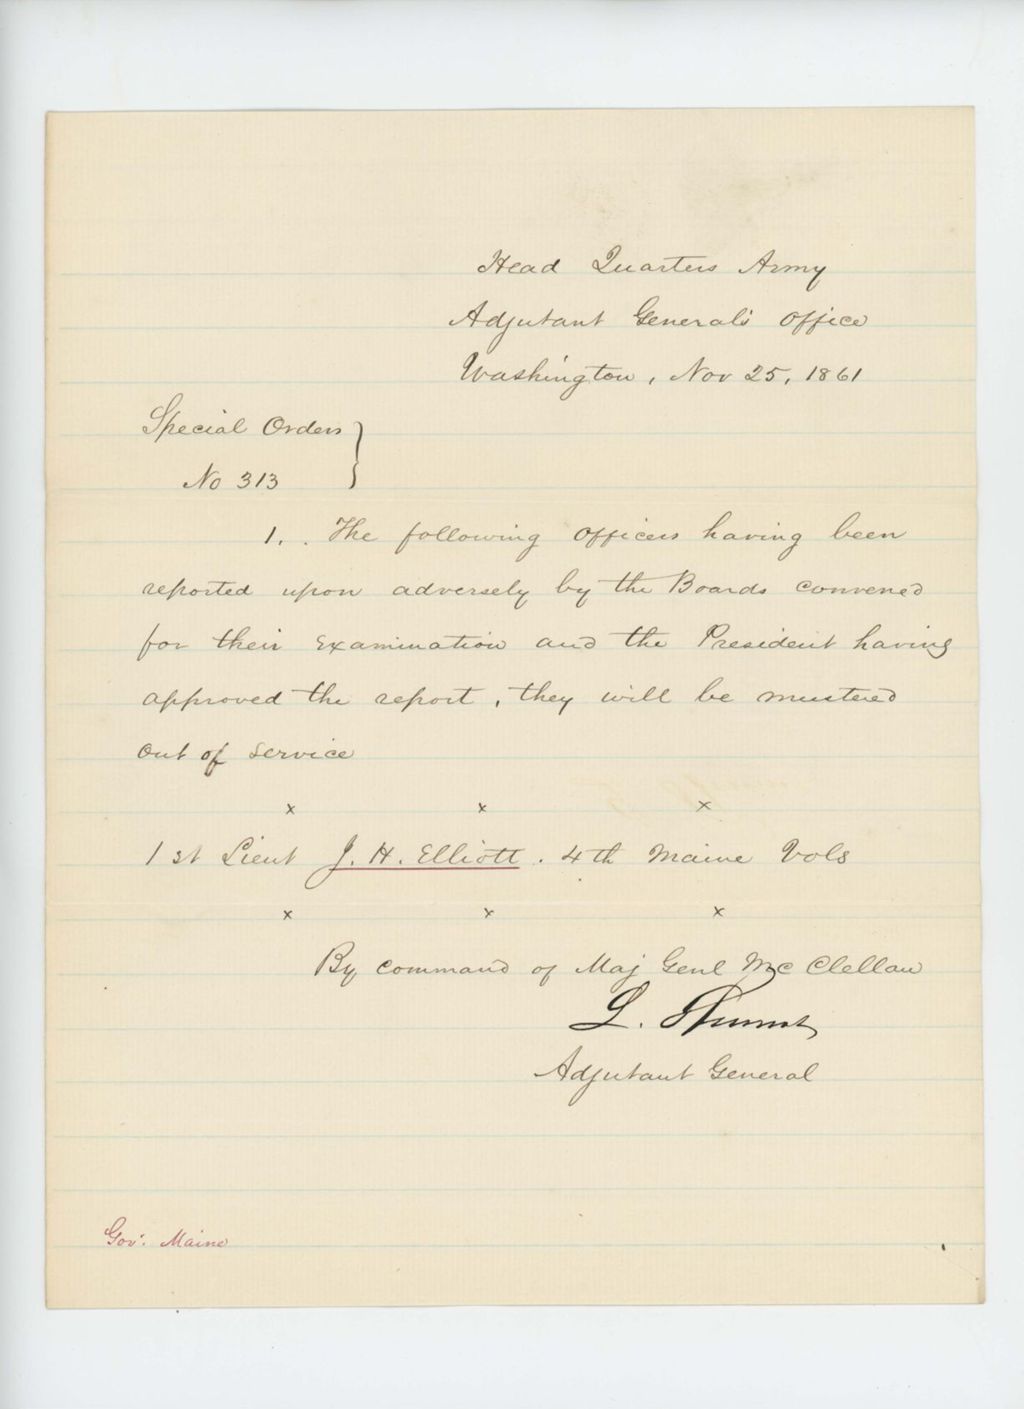 Head Quarters Army
Adjutant General's Office
Washington, Nov 25, 1861
Special Orders }
No 313
1. . The following Officers having been
reported upon adversely by the Boards convened
for their examination and the President having
approved the report, they will be mustered
out of service
x x x
1st Lieut J. H. Elliott. 4th Maine Vols
x x x
By command of Maj Genl McClellan
L. Thomas
Adjutant General
Gov: Maine